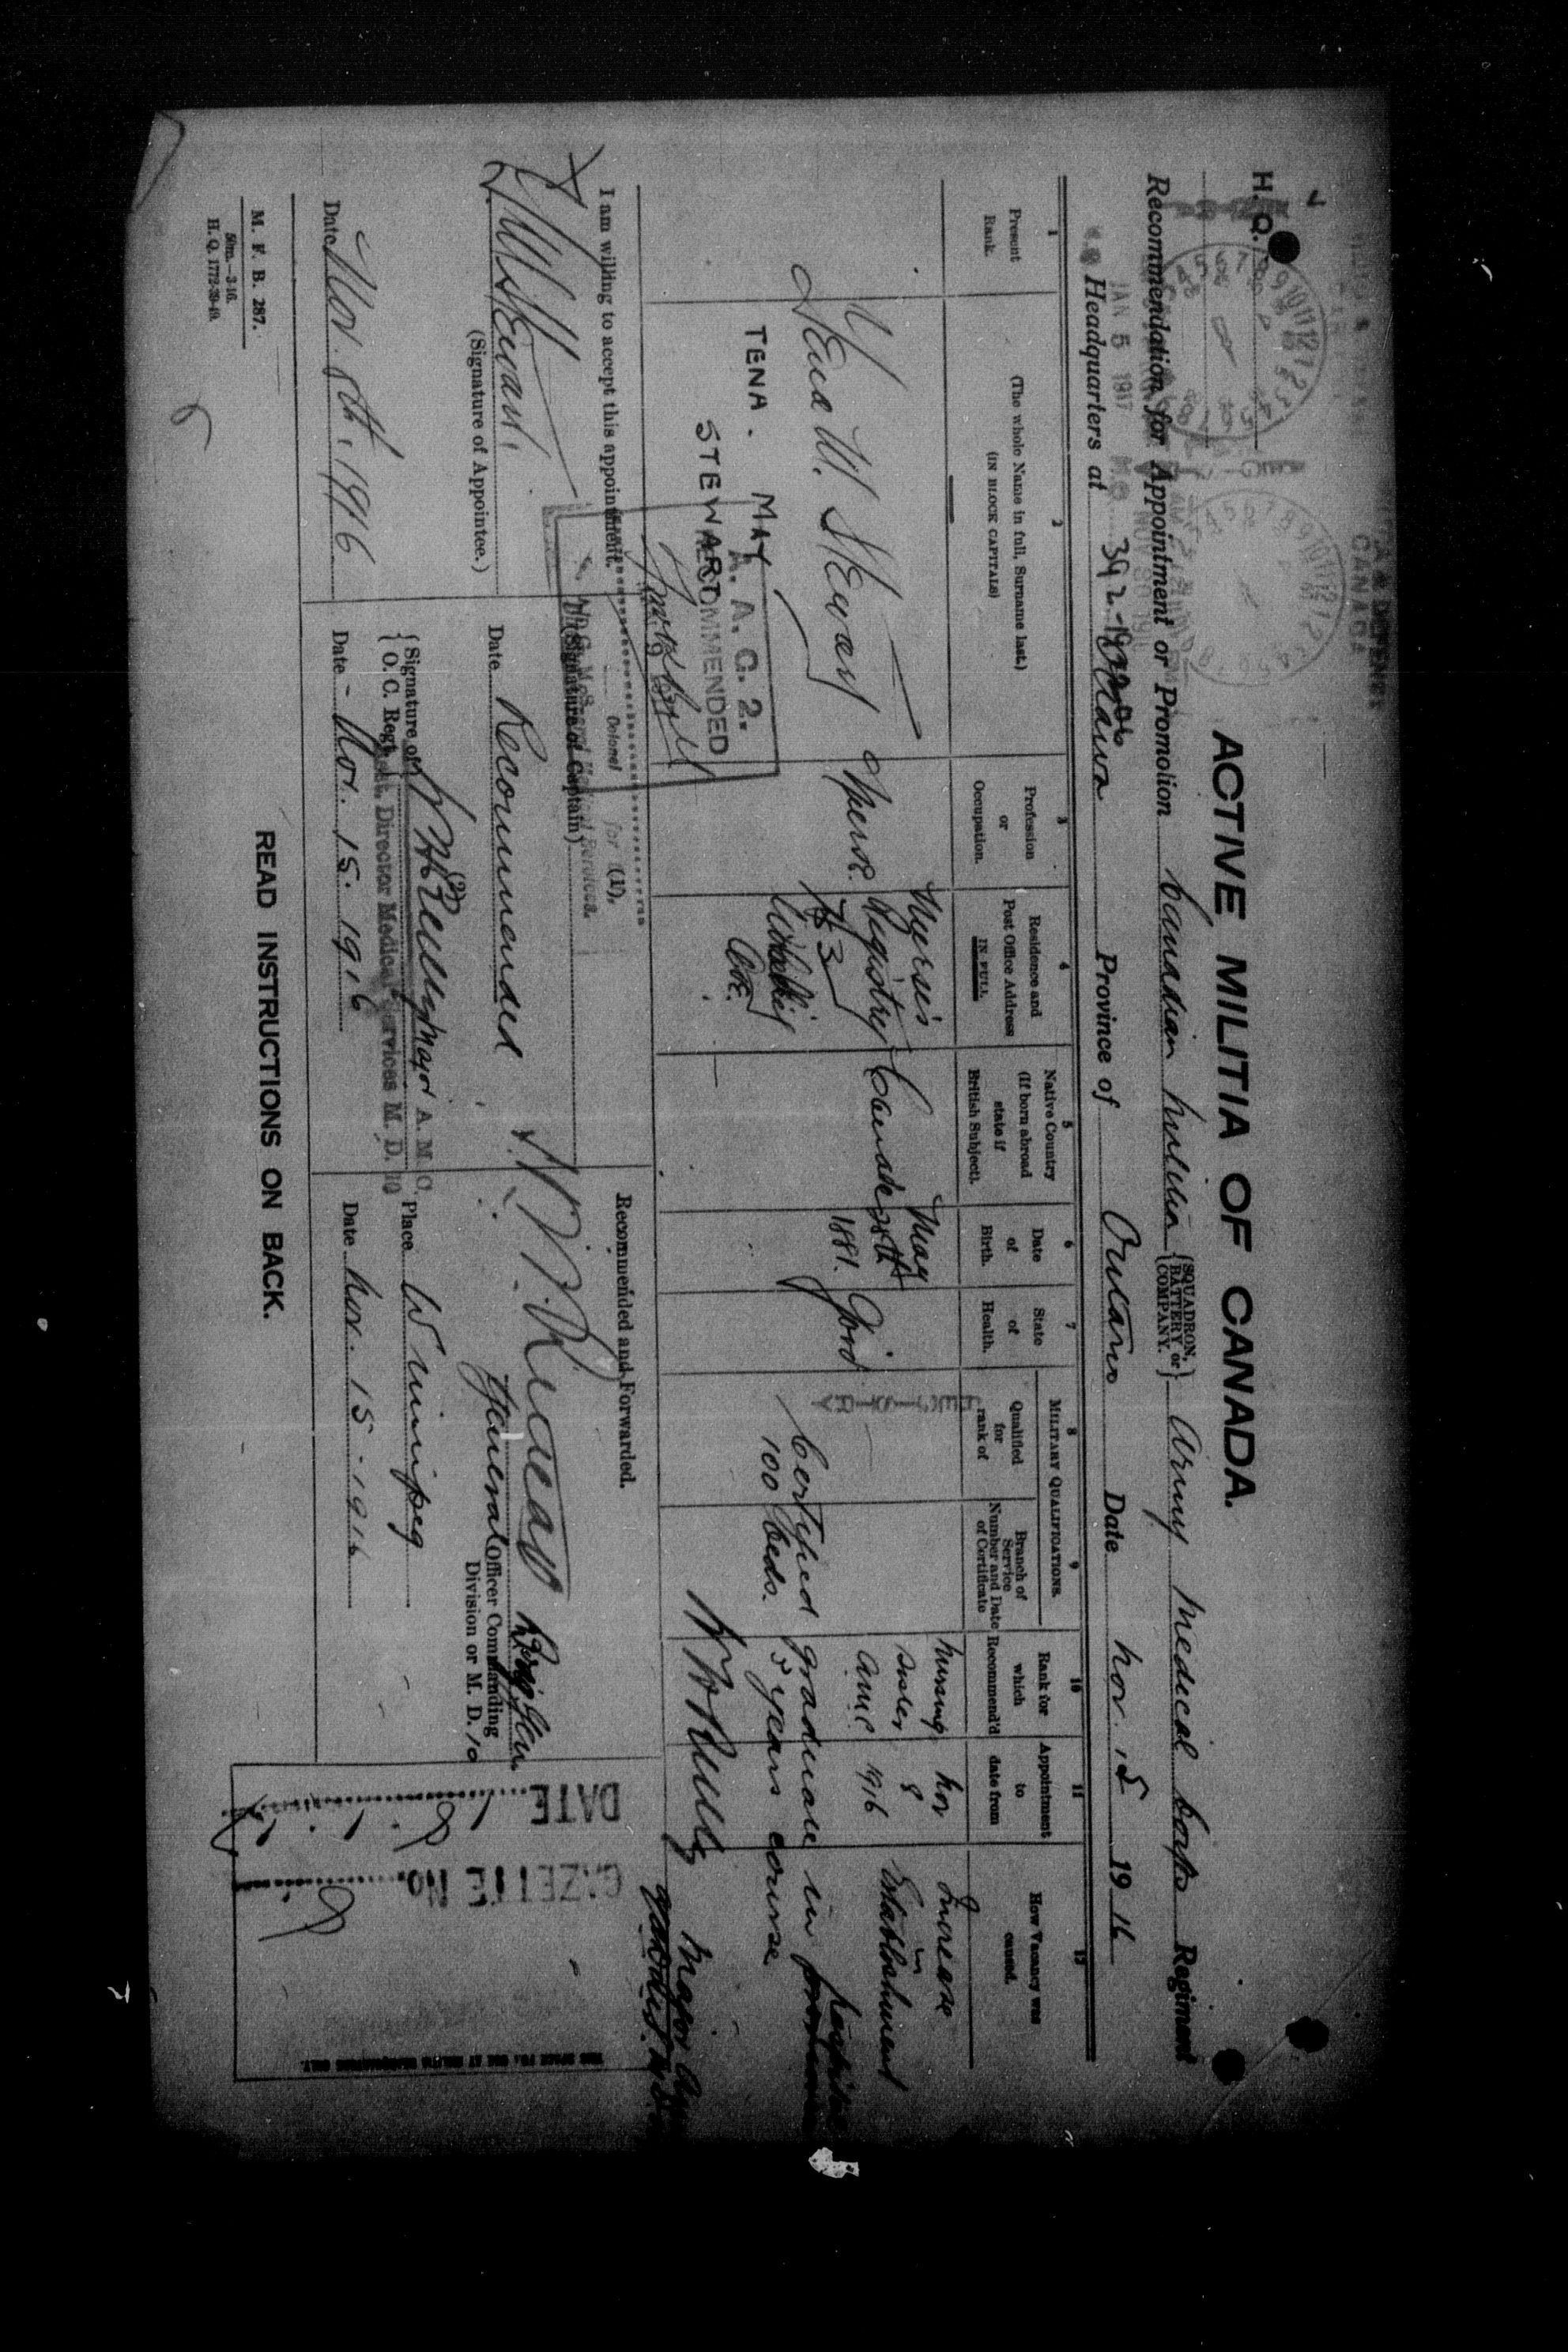 H. Q.
JAN 5 1917
CANADA
ACTIVE MILITIA OF CANADA.
Recommendation for Appointment or Promotion Canadian Militia {SQUADRON, BATTERY or COMPANY.} Army Medical Corps Regiment
Headquarters at Ottawa Province of Ontario Date Nov. 15 1916
1
Present Rank.
2
(The whole Name in full, Surname last.)
(IN BLOCK CAPITALS)
3
Profession or Occupation.
4
Residence and Post Office Address IN FULL
5
Native Country (If born abroad state if British Subject).
6
Date of Birth.
7
State of Health.
MILITARY QUALIFICATIONS.
8
Qualified for rank of
9
Branch of Service Number and Date of Certificate
10
Rank for which Recommend'd
11
Appointment to date from
12
How Vacancy was caused.
Tena M. Stewart
TENA. MAY
STEWART
Nurse.
Nurse's Registry
Canada
May 28th 1881.
Good
Nursing Sister AMC
Nov 8 1916
Increase in Establishment
Certified graduate in hospital
100 beds. 3 years course
A. A. C. 2.
RECOMMENDED
Major
I am willing to accept this appointment.
T. M. Stewart
(Signature of Appointee.)
Date Nov. 8th, 1916
Colonel
for (1).
(Signature of Captain)
Date Recommended
{Signature of O. C. Regt. Major A. M. C.
(2)
Asst. Director Medical Services M. D. 10
Date Nov. 15. 1916
Recommended and Forwarded.
H. N. Ruttan Brig Gen
General Officer Commanding
Division or M. D. 10
Place Winnipeg
Date Nov. 15. 1916
DATE
GAZETTE No.
THIS SPACE FOR USE AT MILITIA HEADQUARTERS ONLY.
M. F. B. 287.
50m.—3-16.
H. Q. 1772-39-49.
READ INSTRUCTIONS ON BACK.